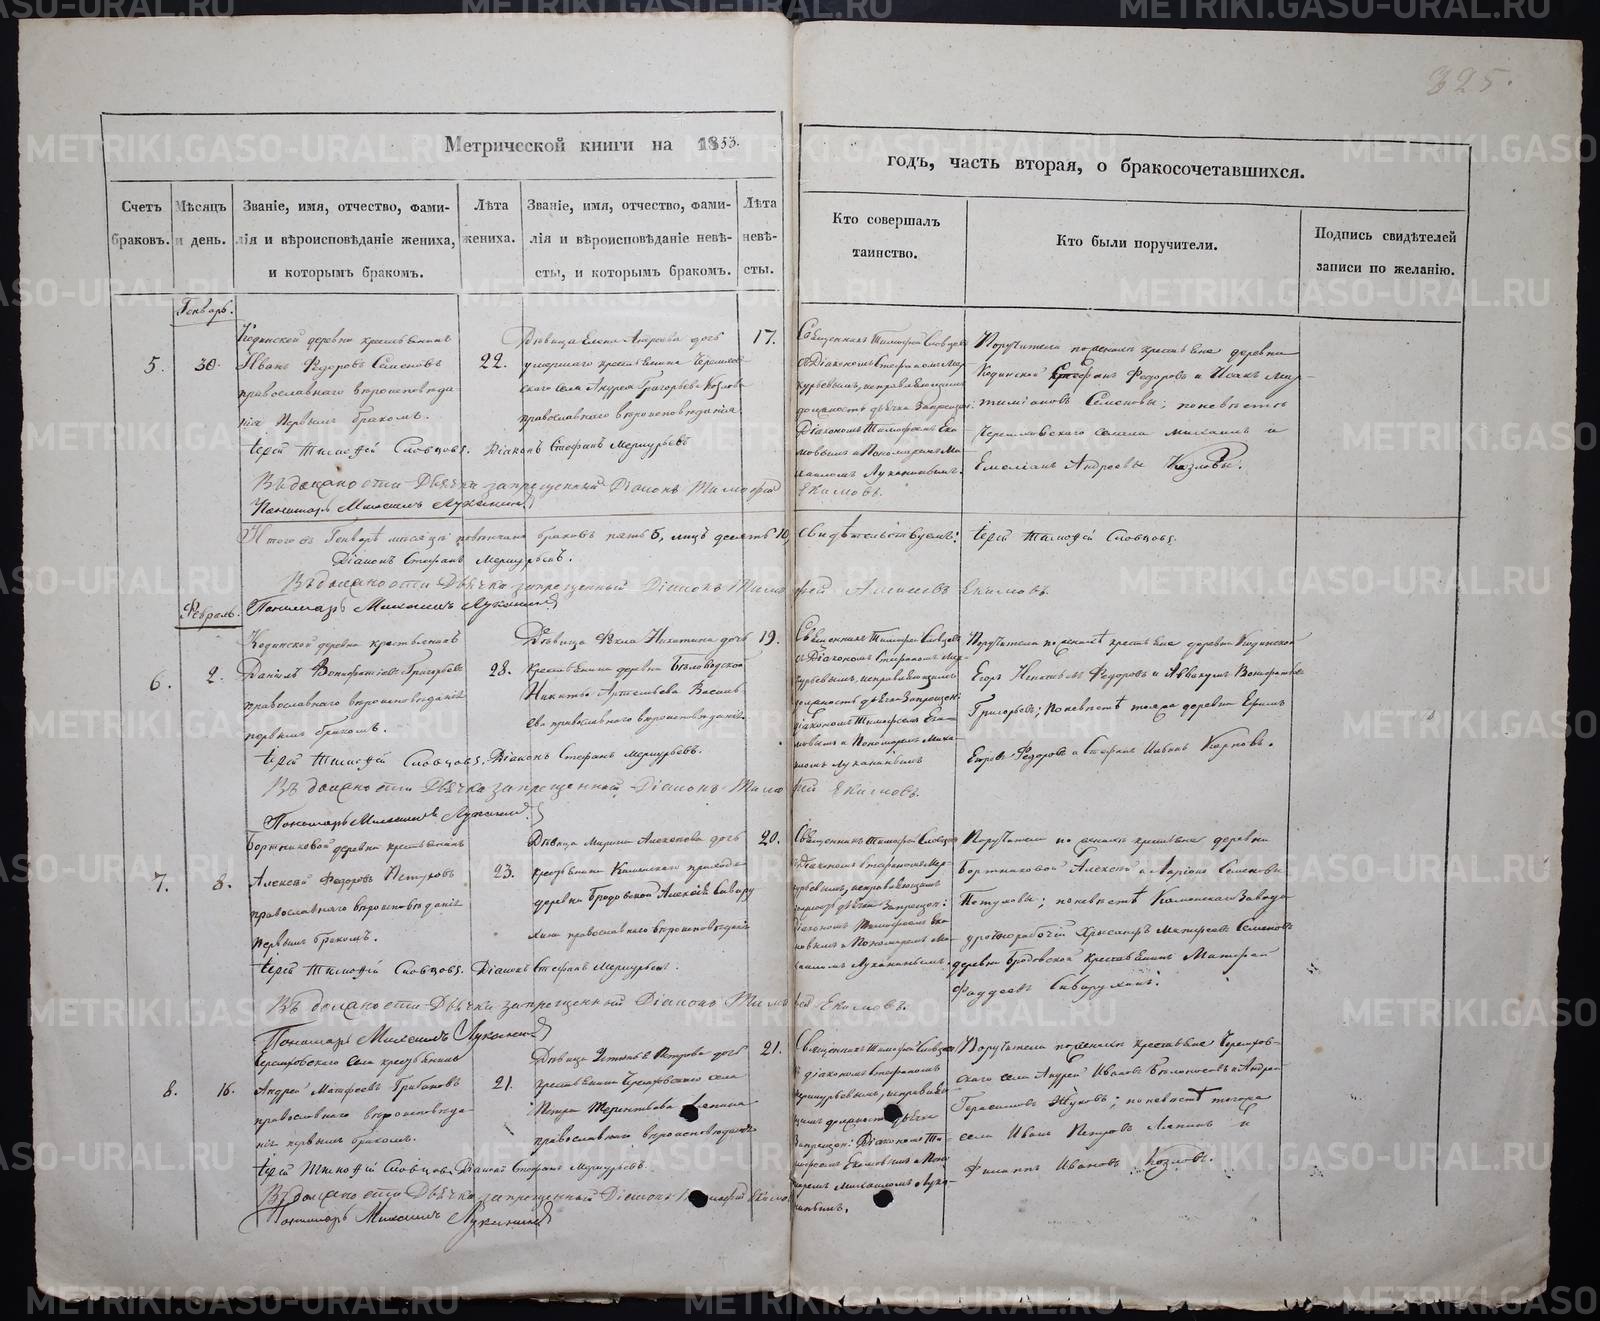 825.
Метрической книги на 1853.
годъ, часть вторая, о бракосочетавшихся.
Счетъ браковъ.
Мѣсяцъ и день.
Званіе, имя, отчество, фами-
лія и вѣроисповѣданіе жениха,
и которымъ бракомъ.
Лѣта жениха.
Званіе, имя, отчество, фами-
лія и вѣроисповѣданіе невѣ-
сты, и которымъ бракомъ.
Лѣта невѣ-
сты.
Кто совершалъ
таинство.
Кто были поручители.
Подпись свидѣтелей
записи по желанію.
Генварь.
5.
30.
Кодинской деревни крестьянинъ
Иванъ Федоровъ Семеновъ
православнаго вѣроисповѣда
нія первымъ бракомъ.
22.
Дѣвица Елена Андреева дочь
умершаго крестьянина
скаго села Андрея Григорьева Козлова
православнаго вѣроисповѣданія
17.
Священникъ Тимофей Словцовъ
съ Діакономъ Стефаномъ Мер
курьевымъ, исправляющимъ
должность дьячка Запрещен:
Діакономъ Тимофеемъ Еки
мовымъ и Пономаремъ Ми
хаиломъ Луканинымъ.
Поручители по женихѣ крестьяне деревни
Кодинской Стефанъ Федоровъ и Исакъ
Семеновы; по невѣстѣ
села Михаилъ и
Емельянъ Андреевы Козловы.
Іерей Тимофей Словцовъ. Діаконъ Стефанъ Меркурьевъ
Въ должности Дьячка запрещенный Діаконъ Тимофей Екимовъ.
Пономарь Михаилъ Луканинъ
Итого въ Генварѣ мѣсяцѣ повѣнчано браковъ пять 5, лицъ десять 10, свидѣтельствуемъ: Іерей Тимофей Словцовъ.
Діаконъ Стефанъ Меркурьевъ.
Въ должности Дьячка запрещенный Діаконъ Тимофей Екимовъ.
Пономарь Михаилъ Луканинъ
Февраль.
6.
2.
Кодинской деревни крестьянинъ
Даніилъ Вонифатіевъ Григорьевъ
православнаго вѣроисповѣданія
первымъ бракомъ.
28.
Дѣвица Фекла Никитина дочь
крестьянина деревни Бѣловодской
Никиты Василь
ева православнаго вѣроисповѣданія
19.
Священникъ Тимофей Словцовъ
съ Діакономъ Стефаномъ Мер
курьевымъ, исправляющимъ
должность дьячка Запрещен:
діакономъ Тимофеемъ Еки
мовымъ и Пономаремъ Миха
иломъ Луканинымъ
Поручители по женихѣ крестьяне деревни Кодинской
Егоръ Федоровъ и Аввакумъ Вонифатьевъ
Григорьевъ; по невѣстѣ тояжъ деревни Ефимъ
Федоровъ и Стефанъ Карповъ.
Іерей Тимофей Словцовъ. Діаконъ Стефанъ Меркурьевъ.
Въ должности Дьячка запрещенный Діаконъ Тимофей Екимовъ.
Пономарь Михаилъ Луканинъ
7.
8.
Бортниковой деревни крестьянинъ
Алексѣй Федоровъ Петуховъ
православнаго вѣроисповѣданія
первымъ бракомъ.
23.
Дѣвица Марина Алексѣева дочь
крестьянина Каменскаго прихода
деревни Бродовской Алексѣя Сивару
хина православнаго вѣроисповѣданія
20.
Священникъ Тимофей Словцовъ
съ Діакономъ Стефаномъ Мер
курьевымъ, исправляющимъ
должность дьячка Запрещен:
Діакономъ Тимофеемъ Еки
мовымъ и Пономаремъ Ми
хаиломъ Луканинымъ.
Поручители по женихѣ крестьяне деревни
Бортниковой Алексѣй и Ларіонъ Семеновы
Петуховы; по невѣстѣ Каменскаго Завода
Хрисанфъ Матфеевъ Семеновъ
деревни Бродовской крестьянинъ Матфей
Фаддеевъ Сиварухинъ.
Іерей Тимофей Словцовъ. Діаконъ Стефанъ Меркурьевъ.
Въ должности Дьячка запрещенный Діаконъ Тимофей Екимовъ.
Пономарь Михаилъ Луканинъ
8.
16.
села крестьянинъ
Андрей Матфеевъ Грибановъ
православнаго вѣроисповѣда
нія первымъ бракомъ.
21.
Дѣвица Петрова дочь
крестьянина села
Петра Терентьева Ляпина
православнаго вѣроисповѣданія
21.
Священникъ Тимофей Словцовъ
съ діакономъ Стефаномъ
Меркурьевымъ, исправляю
щимъ должность дьячка
Запрещен: Діакономъ Ти
мофеемъ Екимовымъ и Поно
маремъ Михаиломъ Лука-
нинымъ.
Поручители по женихѣ крестьяне
скаго села Андрей Ивановъ Бѣлоносовъ и Андрей
Герасимовъ Жуковъ; по невѣстѣ тогожъ
села Иванъ Петровъ Ляпинъ и
Филиппъ Ивановъ Козловъ.
Іерей Тимофей Словцовъ. Діаконъ Стефанъ Меркурьевъ.
Въ должности Дьячка запрещенный Діаконъ Тимофей Екимовъ
Пономарь Михаилъ Луканинъ
METRIKI.GASO-URAL.RU